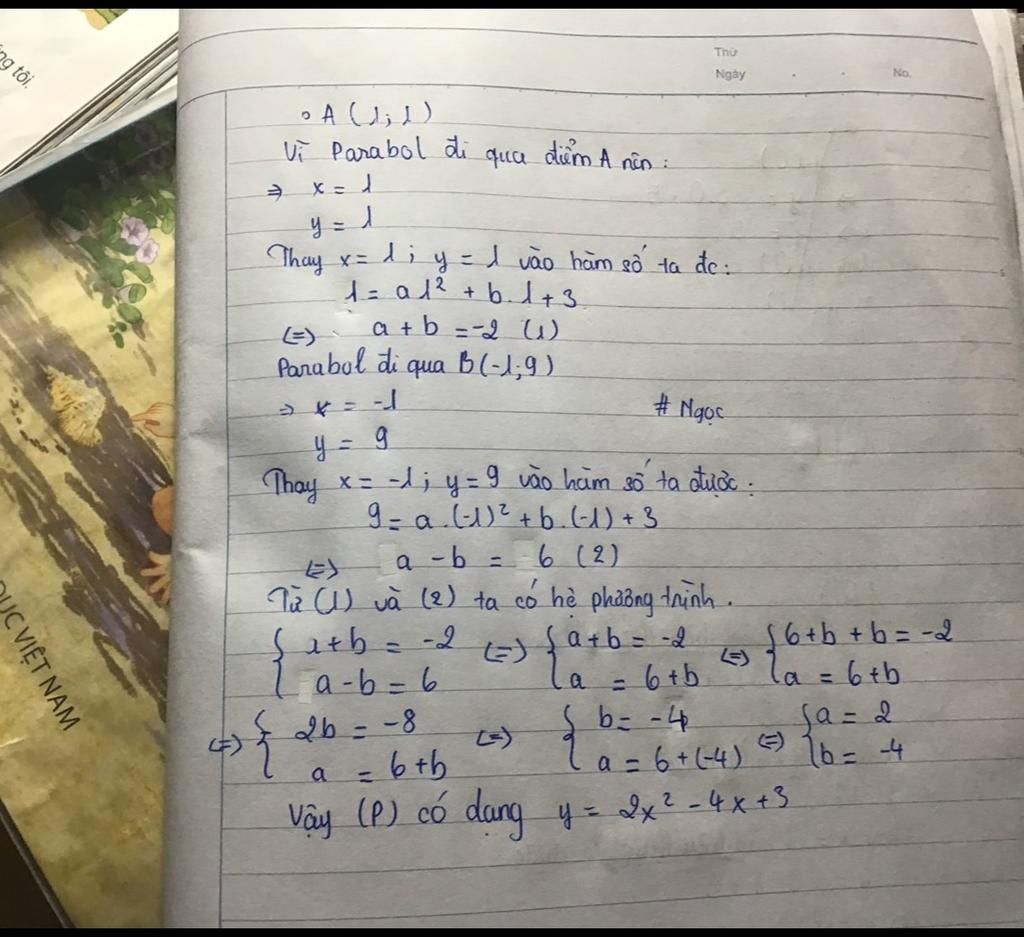 ng tôi.
Thứ
Ngày . . No.
∘ A (1; 1)
Vì Parabol đi qua điểm A nên :
⇒ x = 1
y = 1
Thay x = 1 ; y = 1 vào hàm số ta đc :
1 = a 1² + b. 1 + 3
(=) a + b = -2 (1)
Parabol đi qua B(-1; 9)
⇒ x = -1 # Ngọc
y = 9
Thay x = -1 ; y = 9 vào hàm số ta được :
9 = a . (-1)² + b . (-1) + 3
(=) a - b = 6 (2)
Từ (1) và (2) ta có hệ phương trình .
{ 1 + b = -2 (=) { a + b = -2 (=) { 6 + b + b = -2
a - b = 6 a = 6 + b a = 6 + b
(=) { 2b = -8 (=) { b = -4 (=) { a = 2
a = 6 + b a = 6 + (-4) b = -4
Vậy (P) có dạng y = 2x² - 4x + 3
DỤC VIỆT NAM